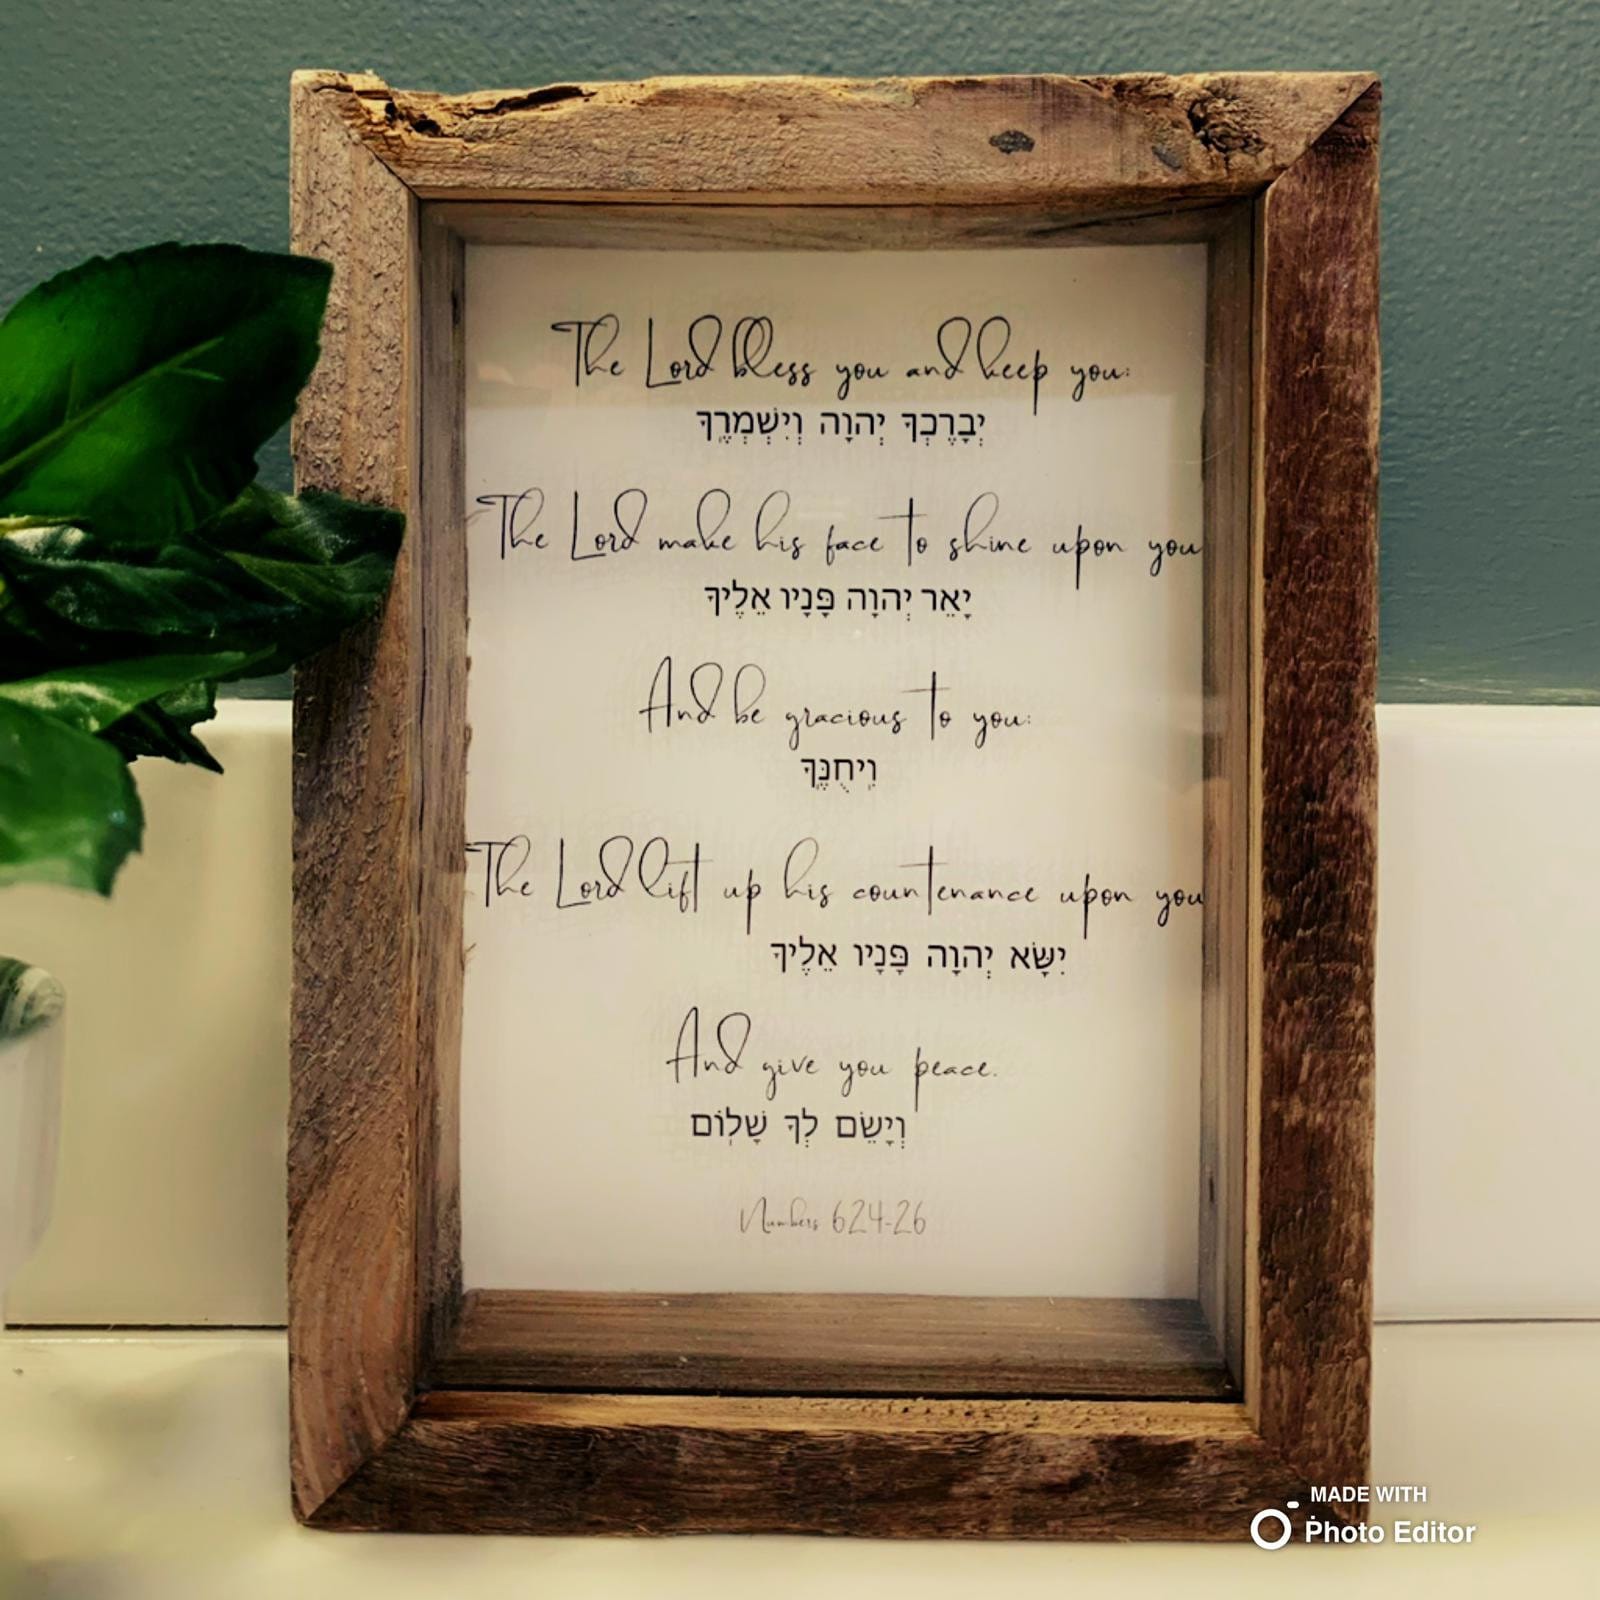 The Lord bless you and keep you:
יְבָרֶכְךָ יְהוָה וְיִשְׁמְרֶֽךָ
The Lord make his face to shine upon you
יָאֵר יְהוָה פָּנָיו אֵלֶיךָ
And be gracious to you:
וִֽיחֻנֶּֽךָּ
The Lord lift up his countenance upon you
יִשָּׂא יְהוָה פָּנָיו אֵלֶיךָ
And give you peace.
וְיָשֵׂם לְךָ שָׁלֽוֹם
Numbers 624-26
MADE WITH
Photo Editor